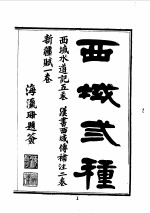 西域弎種
西域水道記五卷 漢書西域傳補注二卷
新疆賦一卷
海瀛題簽
1